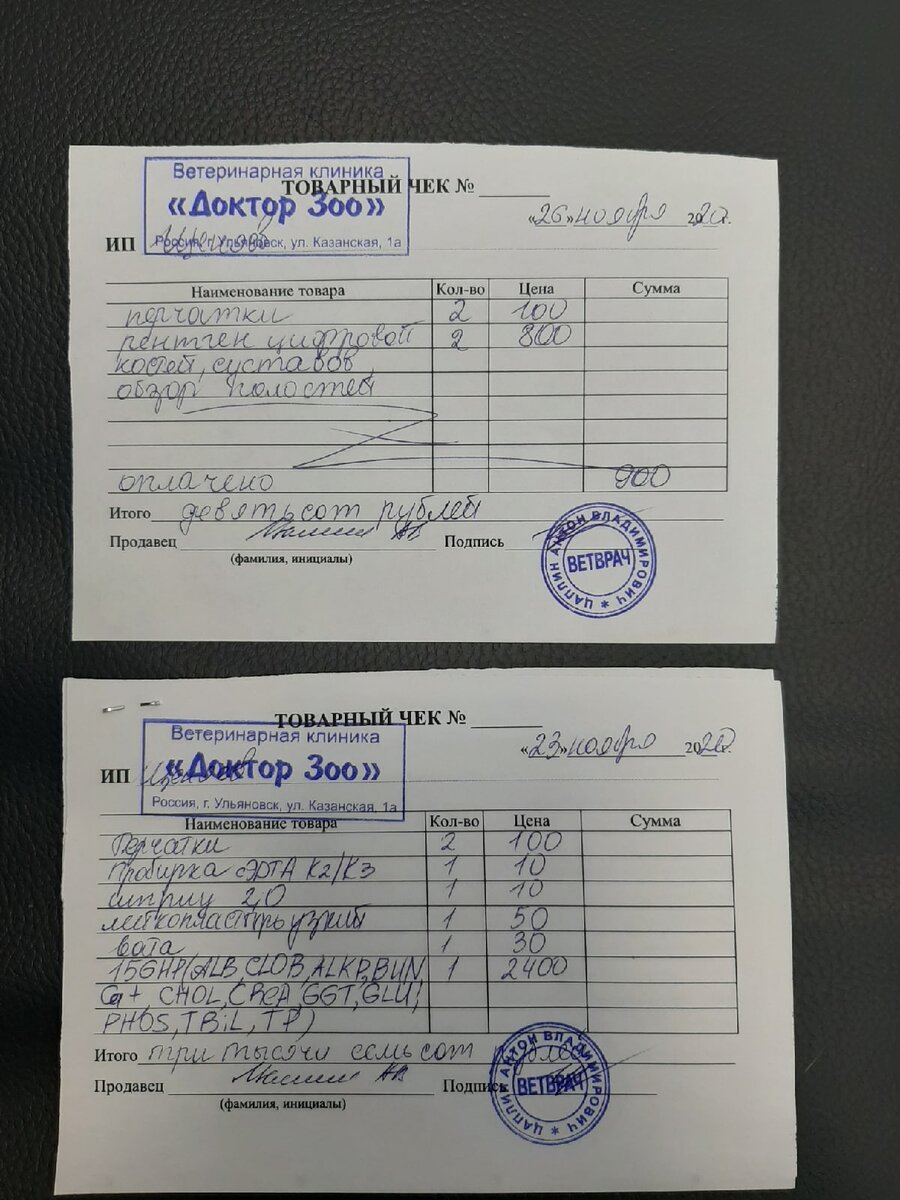 Ветеринарная клиника
ТОВАРНЫЙ ЧЕК №
«Доктор Зоо»
«26» ноября 2020г.
ИП
Россия, г. Ульяновск, ул. Казанская, 1а
Наименование товара Кол-во Цена Сумма
перчатки 2 100
рентген цифровой 2 800
костей, суставов,
обзор полостей
оплачено 900
Итого девятьсот рублей
Продавец Подпись
(фамилия, инициалы)
ЦАПЛИН АНТОН ВЛАДИМИРОВИЧ
ВЕТВРАЧ
ТОВАРНЫЙ ЧЕК №
Ветеринарная клиника
«23» ноября 2020г.
ИП «Доктор Зоо»
Россия, г. Ульяновск, ул. Казанская, 1а
Наименование товара Кол-во Цена Сумма
Перчатки 2 100
Пробирка с ЭДТА К2/К3 1 10
шприц 2,0 1 10
лейкопластырь узкий 1 50
вата 1 30
15GHP(ALB, GLOB, ALKP, BUN, 1 2400
Ca+, CHOL, CREA, GGT, GLU,
PHOS, TBiL, TP)
Итого три тысячи семьсот
Продавец Подпись
(фамилия, инициалы)
ЦАПЛИН АНТОН ВЛАДИМИРОВИЧ
ВЕТВРАЧ